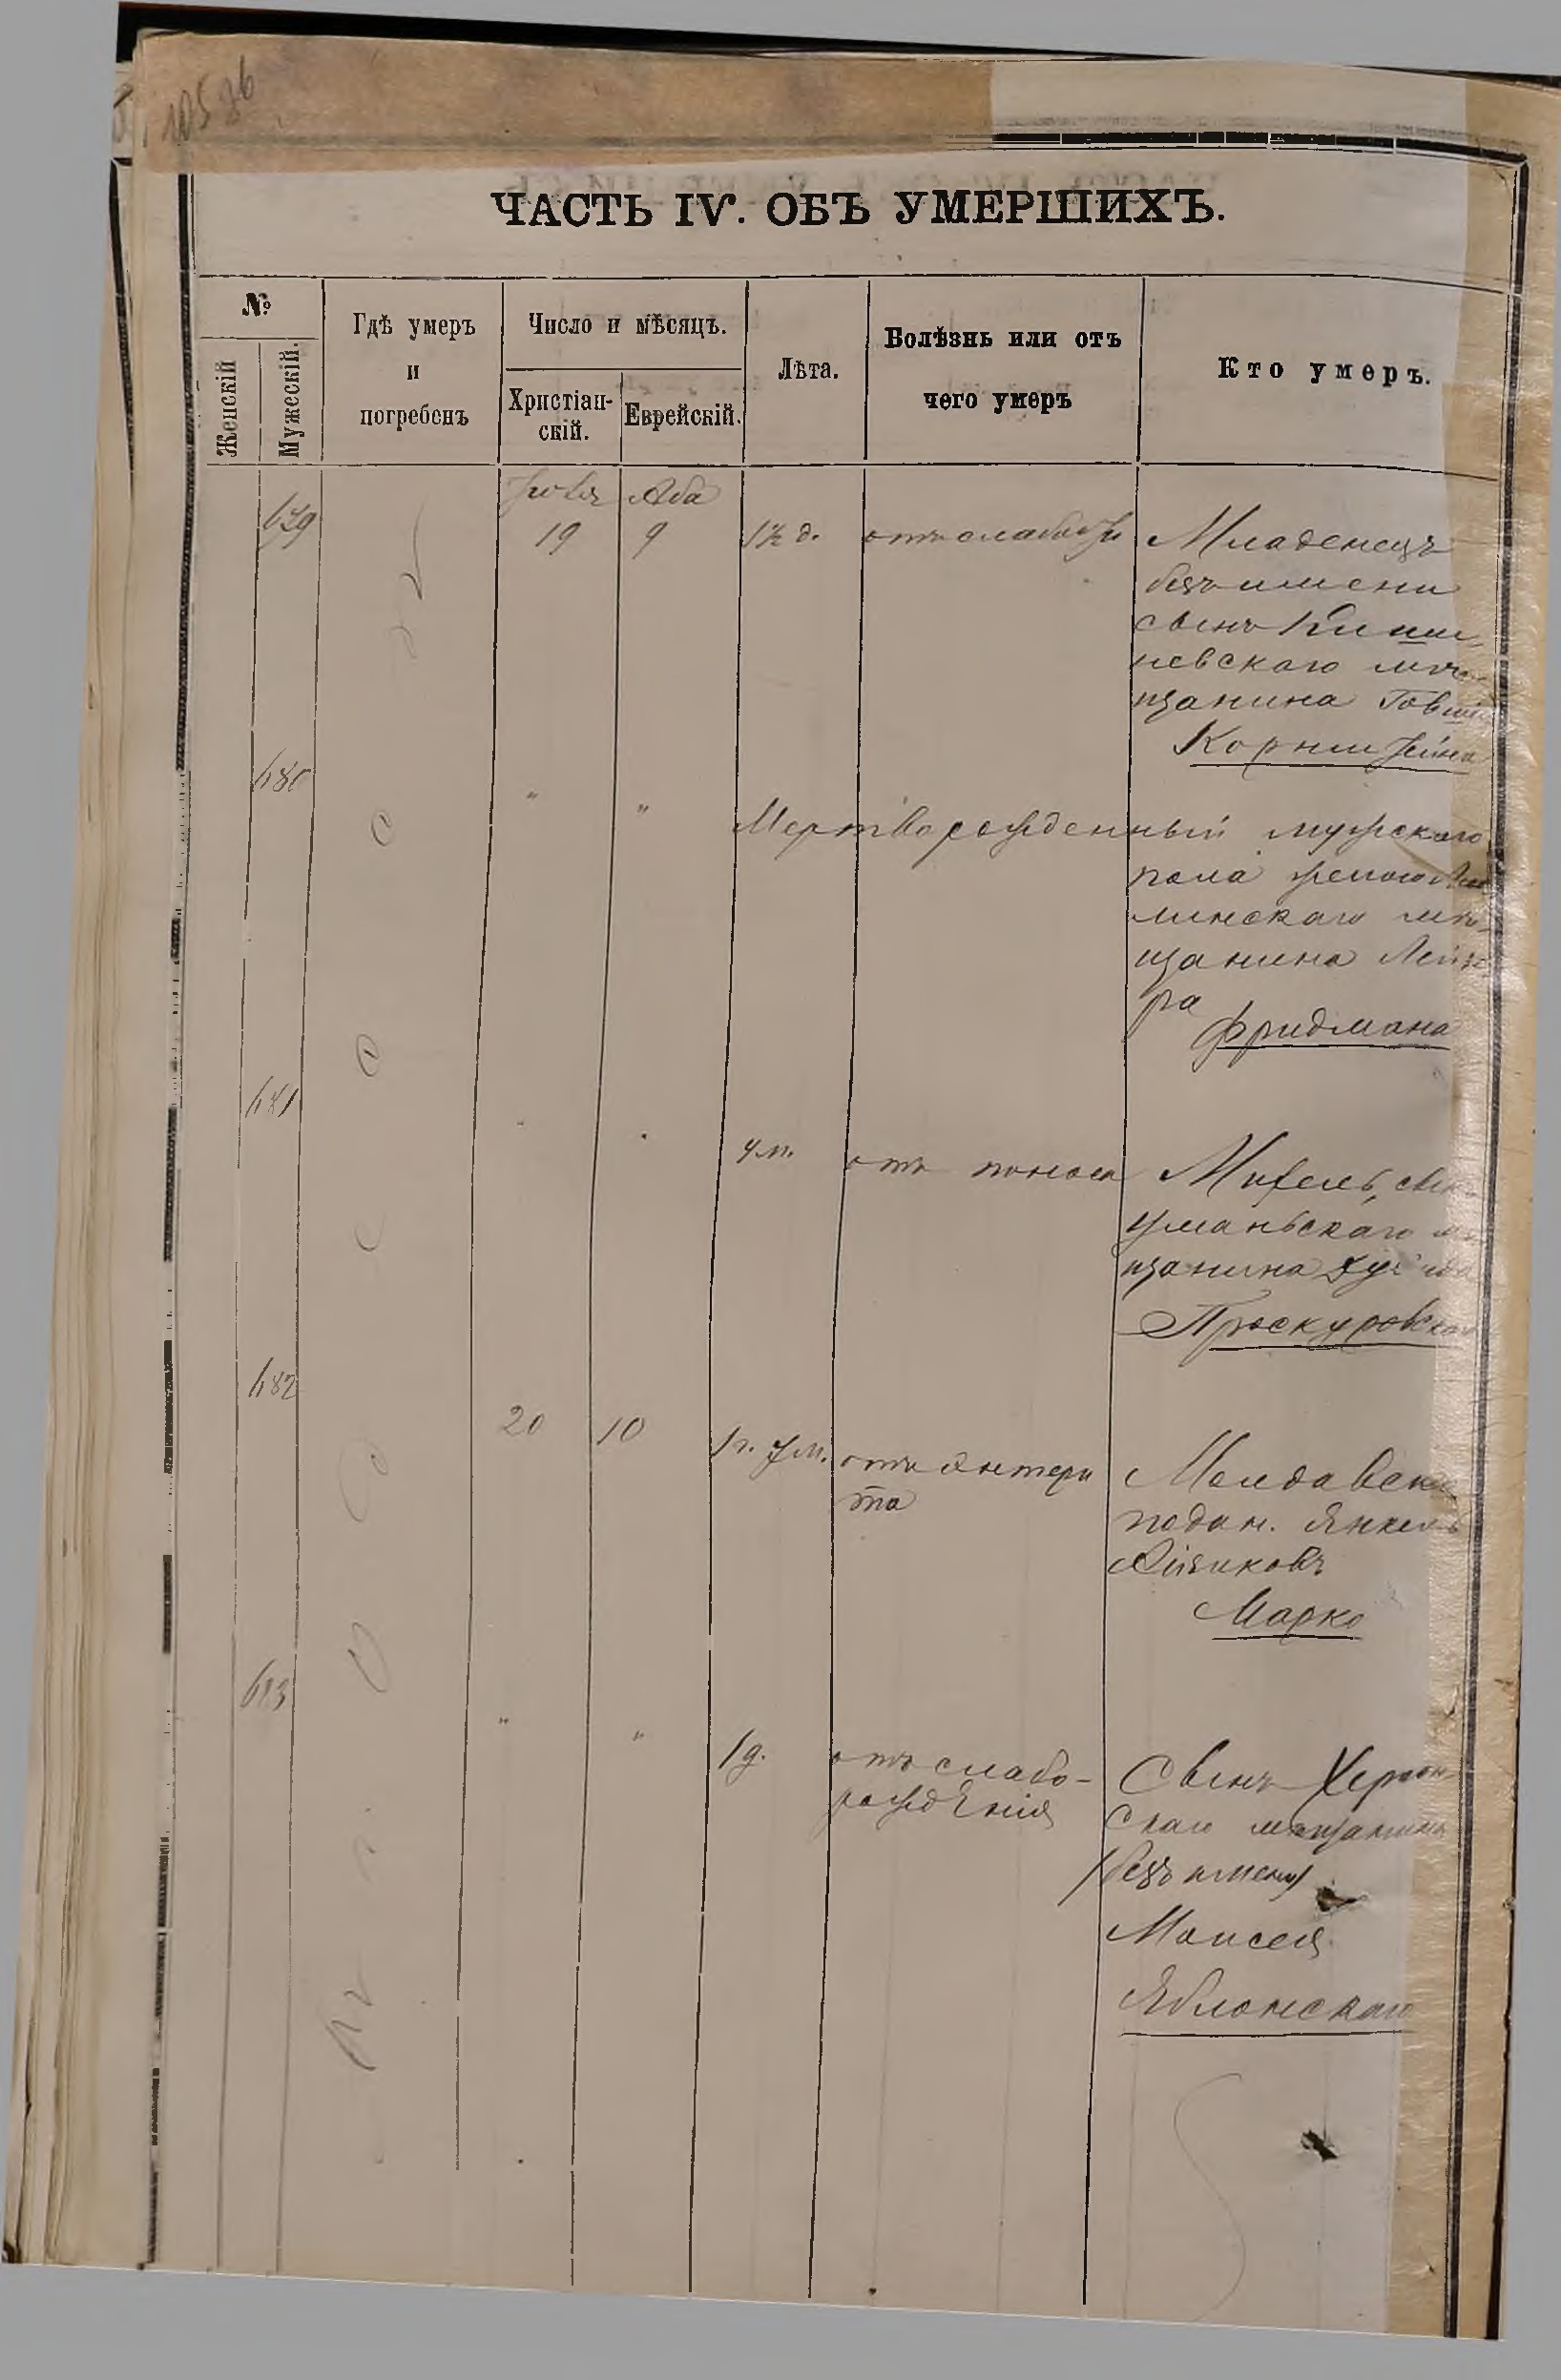 ЧАСТЬ IV. ОБЪ УМЕРШИХЪ.
№
Женскій
Мужескій.
Гдѣ умеръ
и
погребенъ
Число и мѣсяцъ.
Христіан-
скій.
Еврейскій.
Лѣта.
Болѣзнь или отъ
чего умеръ
Кто умеръ.
679
Аба
19 9 отъ слабости Младенецъ
безъ имени
сынъ Киши-
невскаго мѣ-
щанина
Корнштейна
680 " " Мертворожденный мужескаго
пола
мѣ-
щанина Лейзе-
ра
Фридмана
681 " " 4 м. отъ поноса Михель, сынъ
Уманьскаго
щанина
Проскуровскаго
682 20 10 1 г. 7 м. отъ энтери
та
Молдавск
подан. Янкель
Марко
683 " " 1 д. отъ слабо-
рожденія
Сынъ Херсон-
скаго мѣщанина
/безъ имени/
Моисея
Яблонскаго